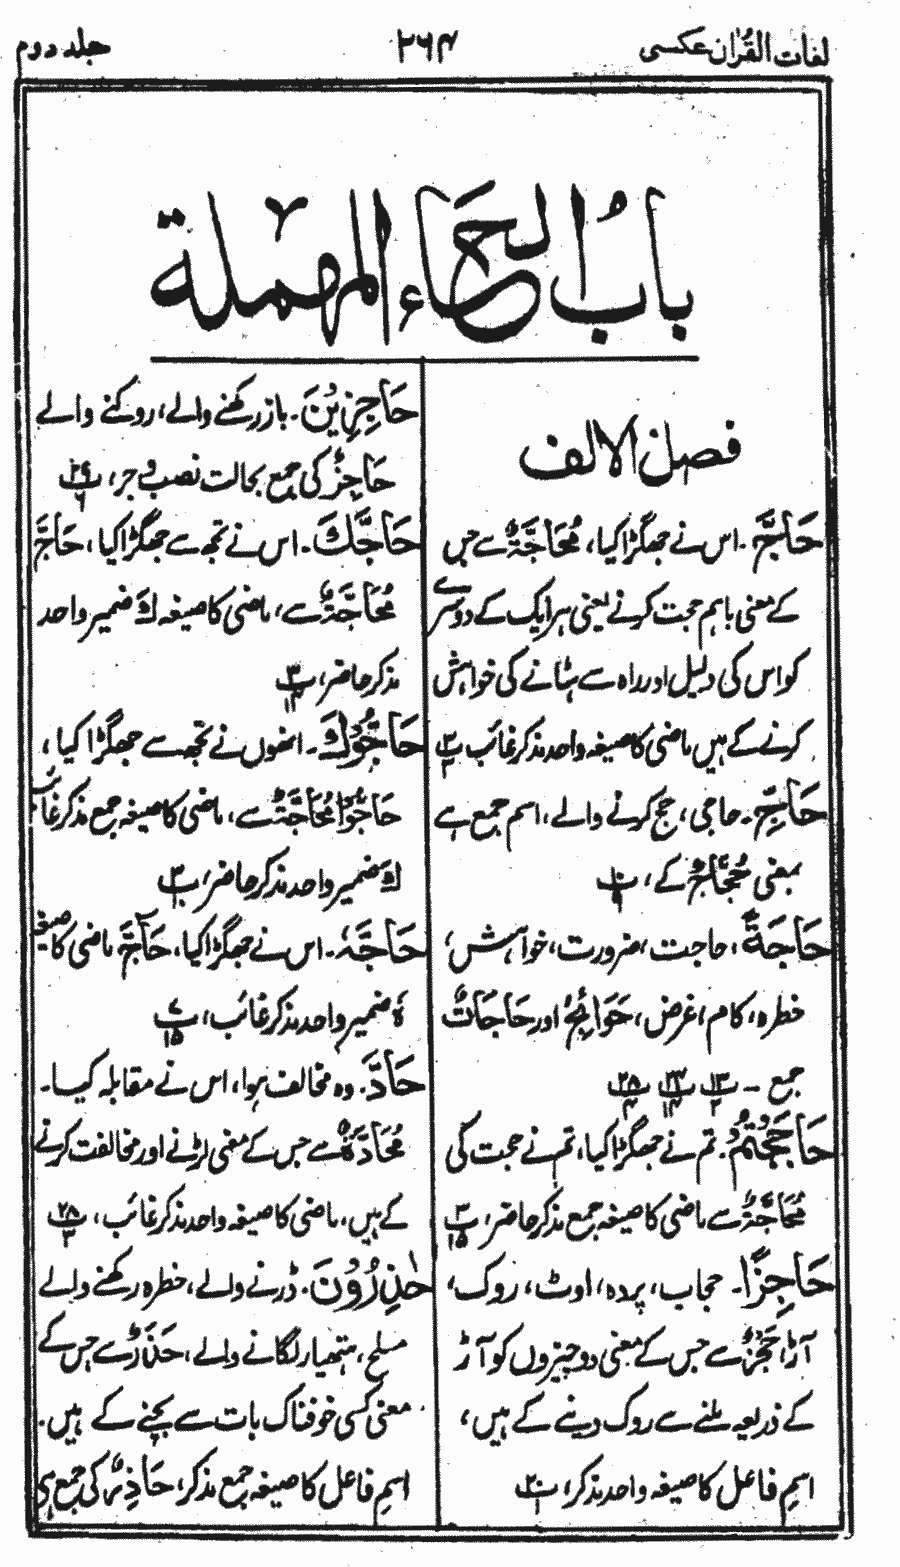 لغات القُرْاٰن عکسی
۲۶۴
جلد دوم
بابُ الحَاء المهملة
فصل الالف
حَاجَّ۔ اس نے جھگڑا کیا، مُحَاجَّةٌ سے جس
کے معنی باہم حجت کرنے یعنی ہر ایک کے دوسرے
کو اس کی دلیل اور راہ سے ہٹانے کی خواہش
کرنے کے ہیں ماضی کا صیغہ واحد مذکر غائب پ ۳ ۳
حَاجّ۔ حاجی، حج کرنے والے، اسم جمع ہے
بمعنی حُجَّاجٌ کے، پ ۱۰ ۹
حَاجَةً، حاجت، ضرورت، خواہش،
خطرہ، کام، غرض، حَوَائِجُ اور حَاجَاتٌ
جمع ۔ پ ۱۳ ۲ پ ۲۴ ۱۴ پ ۲۸ ۴
حَاجَجْتُمْ۔ تم نے جھگڑا کیا، تم نے حجت کی
مُحَاجَّةٌ سے ماضی کا صیغہ جمع مذکر حاضر، پ ۳ ۱۵
حَاجِزًا۔ حجاب، پردہ، اوٹ، روک،
آڑ، حَجْزٌ سے جس کے معنی دو چیزوں کو آڑ
کے ذریعہ ملنے سے روک دینے کے ہیں،
اسمِ فاعل کا صیغہ واحد مذکر، پ ۲۰ ۱
حَاجِزِيْنَ۔ باز رکھنے والے، روکنے والے
حَاجِزٌ کی جمع بحالت نصب و جر، پ ۲۹ ۶
حَاجَّكَ۔ اس نے تجھ سے جھگڑا کیا، حَاجَّ
مُحَاجَّةٌ سے، ماضی کا صیغہ كَ ضمیر واحد
مذکر حاضر، پ ۳ ۱۴
حَاجُّوْكَ۔ انھوں نے تجھ سے جھگڑا کیا،
حَاجُّوْا مُحَاجَّةٌ سے، ماضی کا صیغہ جمع مذکر غائب
كَ ضمیر واحد مذکر حاضر، پ ۳ ۱۰
حَاجَّهٗ۔ اس نے جھگڑا کیا، حَاجَّ، ماضی کا صیغہ
هٗ ضمیر واحد مذکر غائب، پ ۷ ۱۵
حَادَّ۔ وہ مخالف ہوا، اس نے مقابلہ کیا۔
مُحَادَّةٌ سے جس کے معنی لڑنے اور مخالفت کرنے
کے ہیں، ماضی کا صیغہ واحد مذکر غائب، پ ۲۸ ۳
حٰذِرُوْنَ۔ ڈرنے والے، خطرہ رکھنے والے
مسلح، ہتھیار لگانے والے، حَذَرٌ سے جس کے
معنی کسی خوفناک بات سے بچنے کے ہیں۔
اسمِ فاعل کا صیغہ جمع مذکر، حَاذِرٌ کی جمع ہے